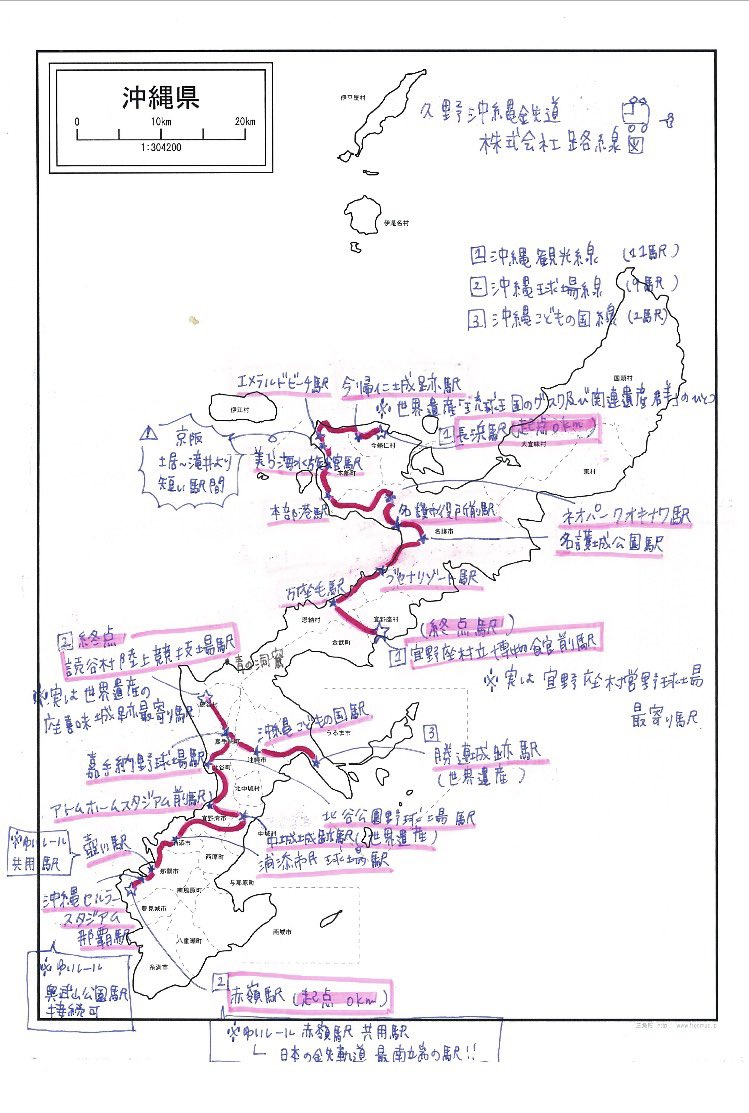 沖縄県
0 10km 20km
1:304200
久野沖縄鉄道
株式会社路線図
伊平屋村
伊是名村
1 沖縄観光線 (11駅)
2 沖縄球場線 (9駅)
3 沖縄こどもの国線 (2駅)
国頭村
大宜味村
東村
伊江村
今帰仁村
本部町
名護市
エメラルドビーチ駅
今帰仁城跡駅
※世界遺産「琉球王国のグスク及び関連遺産群」のひとつ
1 長浜駅(起点0km)
!
京阪
土居〜滝井より
短い駅間
美ら海水族館駅
本部港駅
名護市役所前駅
ネオパークオキナワ駅
名護城公園駅
ブセナリゾート駅
万座毛駅
恩納村
宜野座村
金武町
(終点駅)
1 宜野座村立博物館前駅
※実は宜野座村営野球場
最寄り駅
2 終点
読谷村陸上競技場駅
※実は世界遺産の
座喜味城跡最寄り駅
青の洞窟
読谷村
嘉手納町
沖縄こどもの国駅
うるま市
沖縄市
3
勝連城跡駅
(世界遺産)
嘉手納野球場駅
北谷町
北中城村
アトムホームスタジアム前駅
宜野湾市
中城村
北谷公園野球場駅
中城城跡駅(世界遺産)
浦添市民球場駅
※ゆいレール
共用駅
壺川駅
浦添市
西原町
那覇市
与那原町
南風原町
豊見城市
南城市
八重瀬町
糸満市
沖縄セルラー
スタジアム
那覇駅
※ゆいレール
奥武山公園駅
接続可
2
赤嶺駅(起点 0km)
※ゆいレール 赤嶺駅 共用駅
└ 日本の鉄軌道 最南端の駅!!